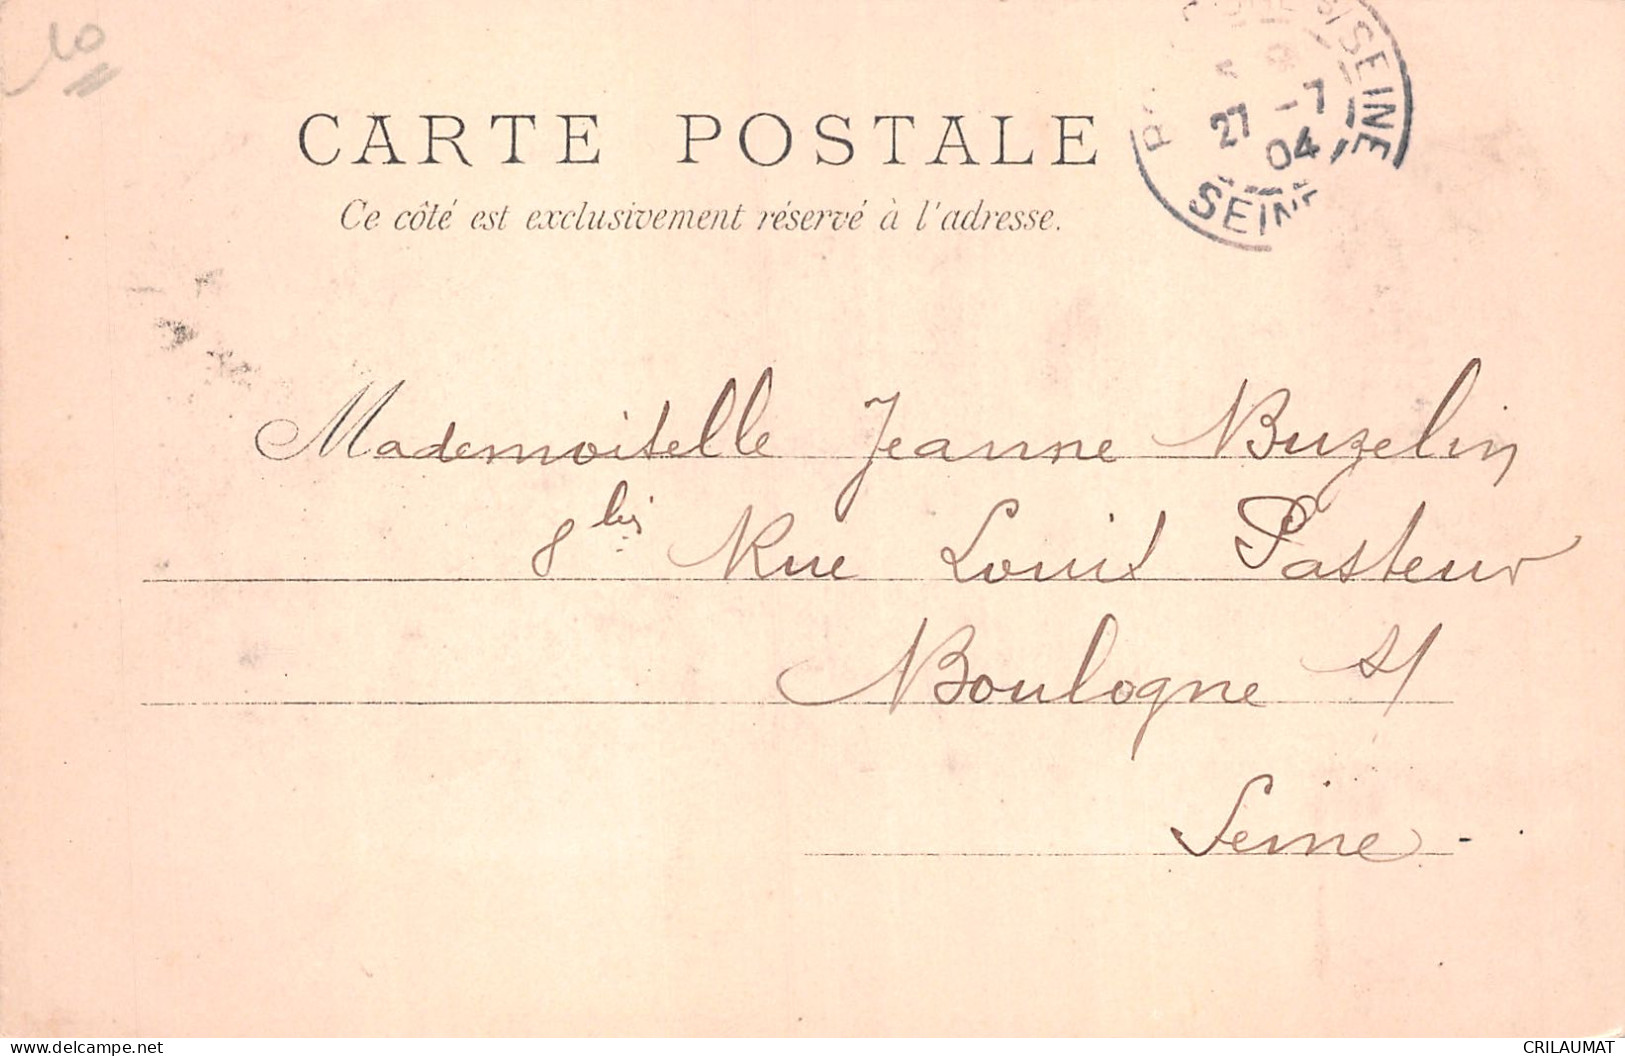 10
S/SEINE
27 -7
04
SEINE
CARTE POSTALE
Ce côté est exclusivement réservé à l'adresse.
Mademoiselle Jeanne Buzelin
8 bis Rue Louis Pasteur
Boulogne s/
Seine.
delcampe.net
CRILAUMAT